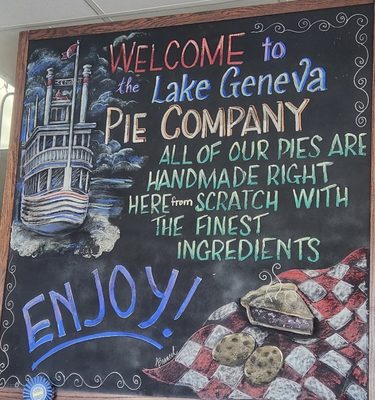 WELCOME to
the Lake Geneva
PIE COMPANY
ALL OF OUR PIES ARE
HANDMADE RIGHT
HERE from SCRATCH WITH
THE FINEST
INGREDIENTS
ENJOY!